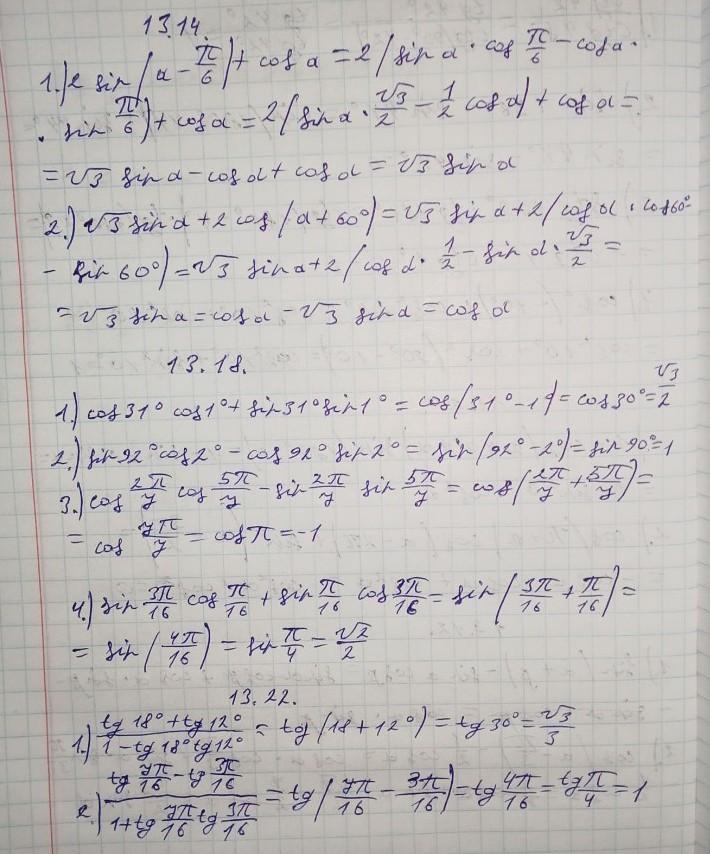 13.14.
1.) 2 sin(α - π/6) + cos α = 2(sin α · cos π/6 - cos α ·
· sin π/6) + cos α = 2(sin α · √3/2 - 1/2 cos α) + cos α =
= √3 sin α - cos α + cos α = √3 sin α
2.) √3 sin α + 2 cos(α + 60°) = √3 sin α + 2(cos α · cos 60° -
- sin 60°) = √3 sin α + 2(cos α · 1/2 - sin α · √3/2 =
= √3 sin α = cos α - √3 sin α = cos α
13.18.
1.) cos 31° cos 1° + sin 31° sin 1° = cos(31° - 1°) = cos 30° = √3/2
2.) sin 92° cos 2° - cos 92° sin 2° = sin(92° - 2°) = sin 90° = 1
3.) cos 2π/7 cos 5π/7 - sin 2π/7 sin 5π/7 = cos(2π/7 + 5π/7) =
= cos 7π/7 = cos π = -1
4.) sin 3π/16 cos π/16 + sin π/16 cos 3π/16 = sin(3π/16 + π/16) =
= sin(4π/16) = sin π/4 = √2/2
13.22.
1.) (tg 18° + tg 12°)/(1 - tg 18° tg 12°) = tg(18 + 12°) = tg 30° = √3/3
2.) (tg 7π/16 - tg 3π/16)/(1 + tg 7π/16 tg 3π/16) = tg(7π/16 - 3π/16) = tg 4π/16 = tg π/4 = 1